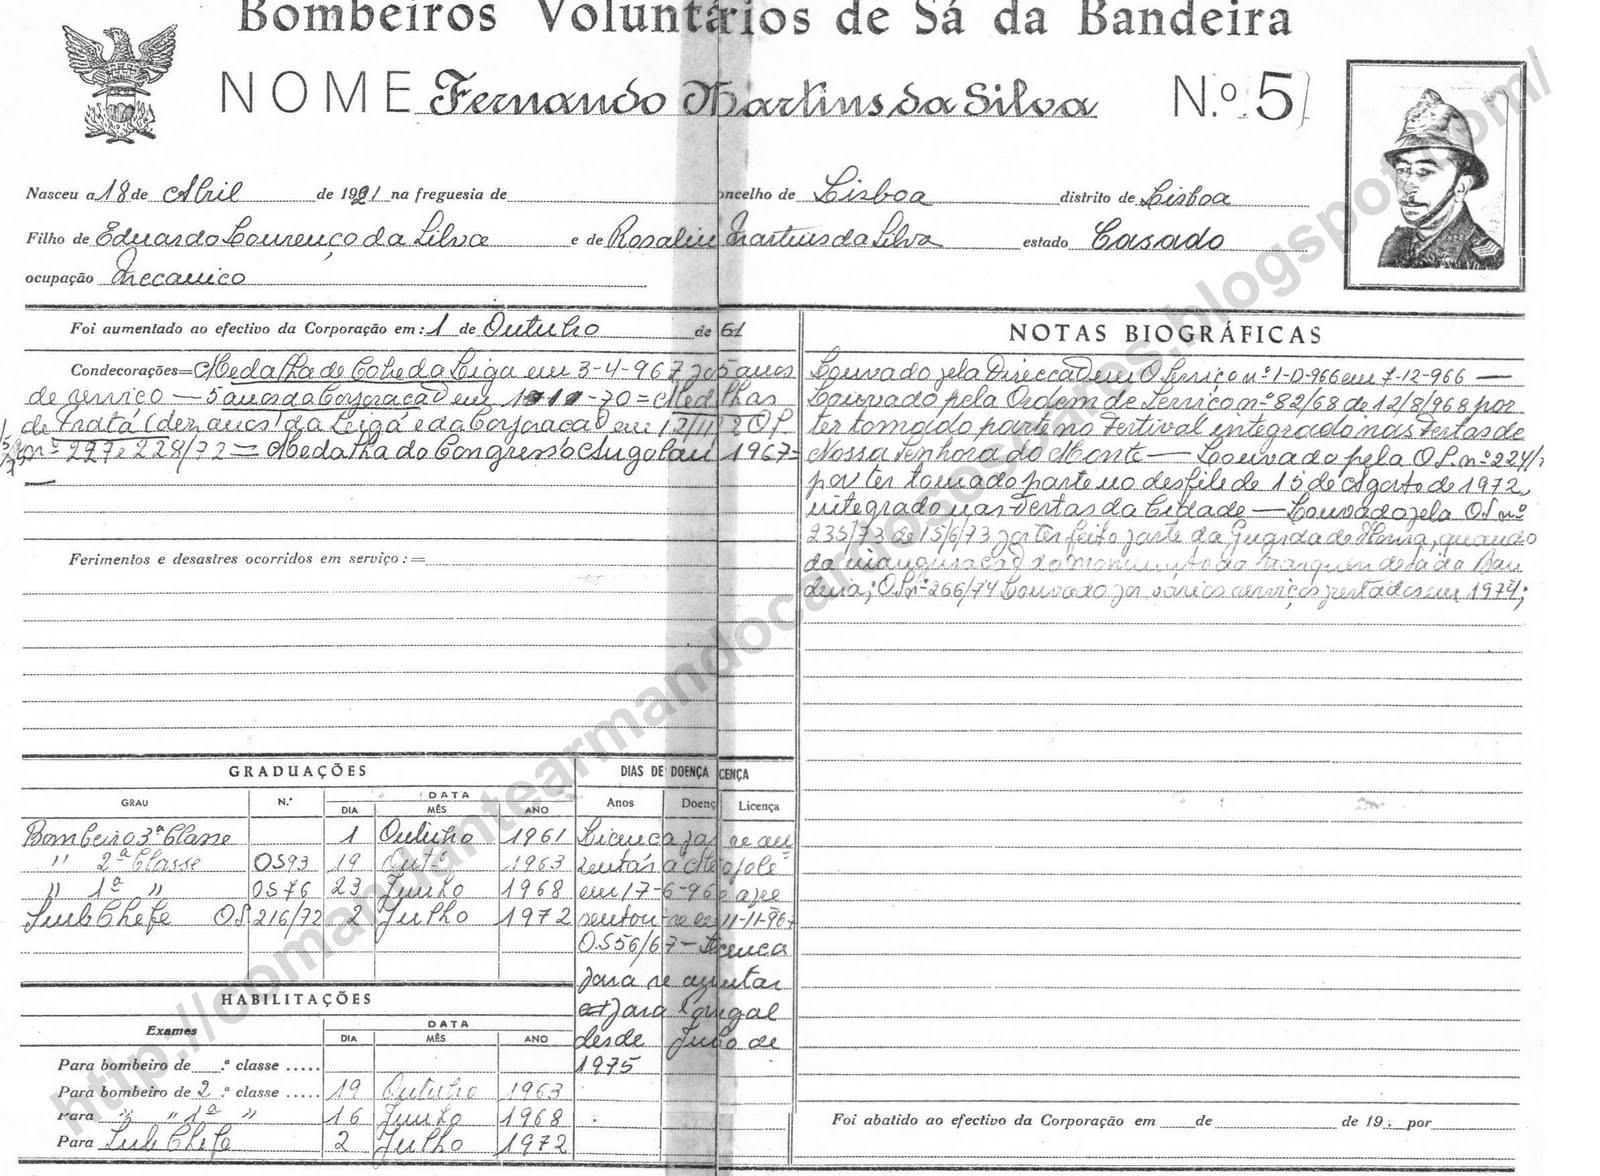 Bombeiros Voluntários de Sá da Bandeira
NOME Fernando Martins da Silva N.º 5
Nasceu a 18 de Abril de 1921 na freguesia de oncelho de Lisboa distrito de Lisboa
Filho de Eduardo Lourenço da Silva e de Rosalin Martins da Silva estado Casado
ocupação Mecanico
Foi aumentado ao efectivo da Corporação em: 1 de Outubro de 61
Condecorações= Medalha de Cobre da Liga em 3-4-967 5 anos
de serviço — 5 anos da Corporação em -70 = Medalhas
de Prata (dez anos) da Liga e da Corporação em O.S.
nº 227 e 228/72 = Medalha do Congresso Angolan 1967=
Ferimentos e desastres ocorridos em serviço:=
NOTAS BIOGRÁFICAS
Louvado pela Direcção em O. Serviço nº 1-D-966 em 7-12-966 —
Louvado pela Ordem de Serviço nº 82/68 de 12/8/968 por
ter tomado parte no Festival integrado nas Festas de
Nossa Senhora do Monte — Louvado pela O.S. nº 224/
por ter tomado parte no desfile de 15 de Agosto de 1972,
integrado nas Festas da Cidade — Louvado pela O.S nº
235/73 de 15/6/73 por ter feito parte da Guarda de Honra, quando
da inauguração do monumento do Marquês de Sá da Ban
deira; O.S nº 266/74 Louvado por vários serviços prestados em 1974;
GRADUAÇÕES
GRAU N.º DATA
DIA MÊS ANO
Bombeiro 3ª Classe 1 Outubro 1961
" 2ª Classe OS93 19 Outº 1963
" 1ª " OS76 23 Junho 1968
Sub Chefe OS 216/72 2 Julho 1972
DIAS DE DOENÇA CENÇA
Anos Doenç Licença
Licença pa se au
sentar á
em 17-6-96 e apre
sentou-se em 11-11-967
O.S56/67 — Licença
para se ausentar
para Portugal
desde de
1975
HABILITAÇÕES
Exames DATA
DIA MÊS ANO
Para bombeiro de .ª classe .....
Para bombeiro de 2 .ª classe ..... 19 Outubro 1963
Para " " 1ª " 16 Junho 1968
Para Sub Chefe 2 Julho 1972
Foi abatido ao efectivo da Corporação em de de 19 : por
http://comandantearmandocardososoares.blogspot.com/